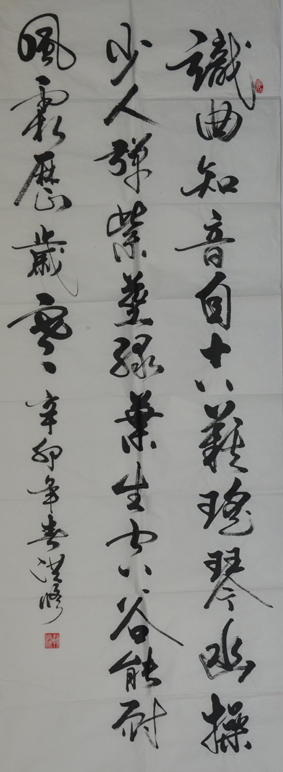 識曲知音自古難瑤琴幽操
少人彈紫莖綠葉生空谷能耐
風霜歷歲寒 辛卯年春洪